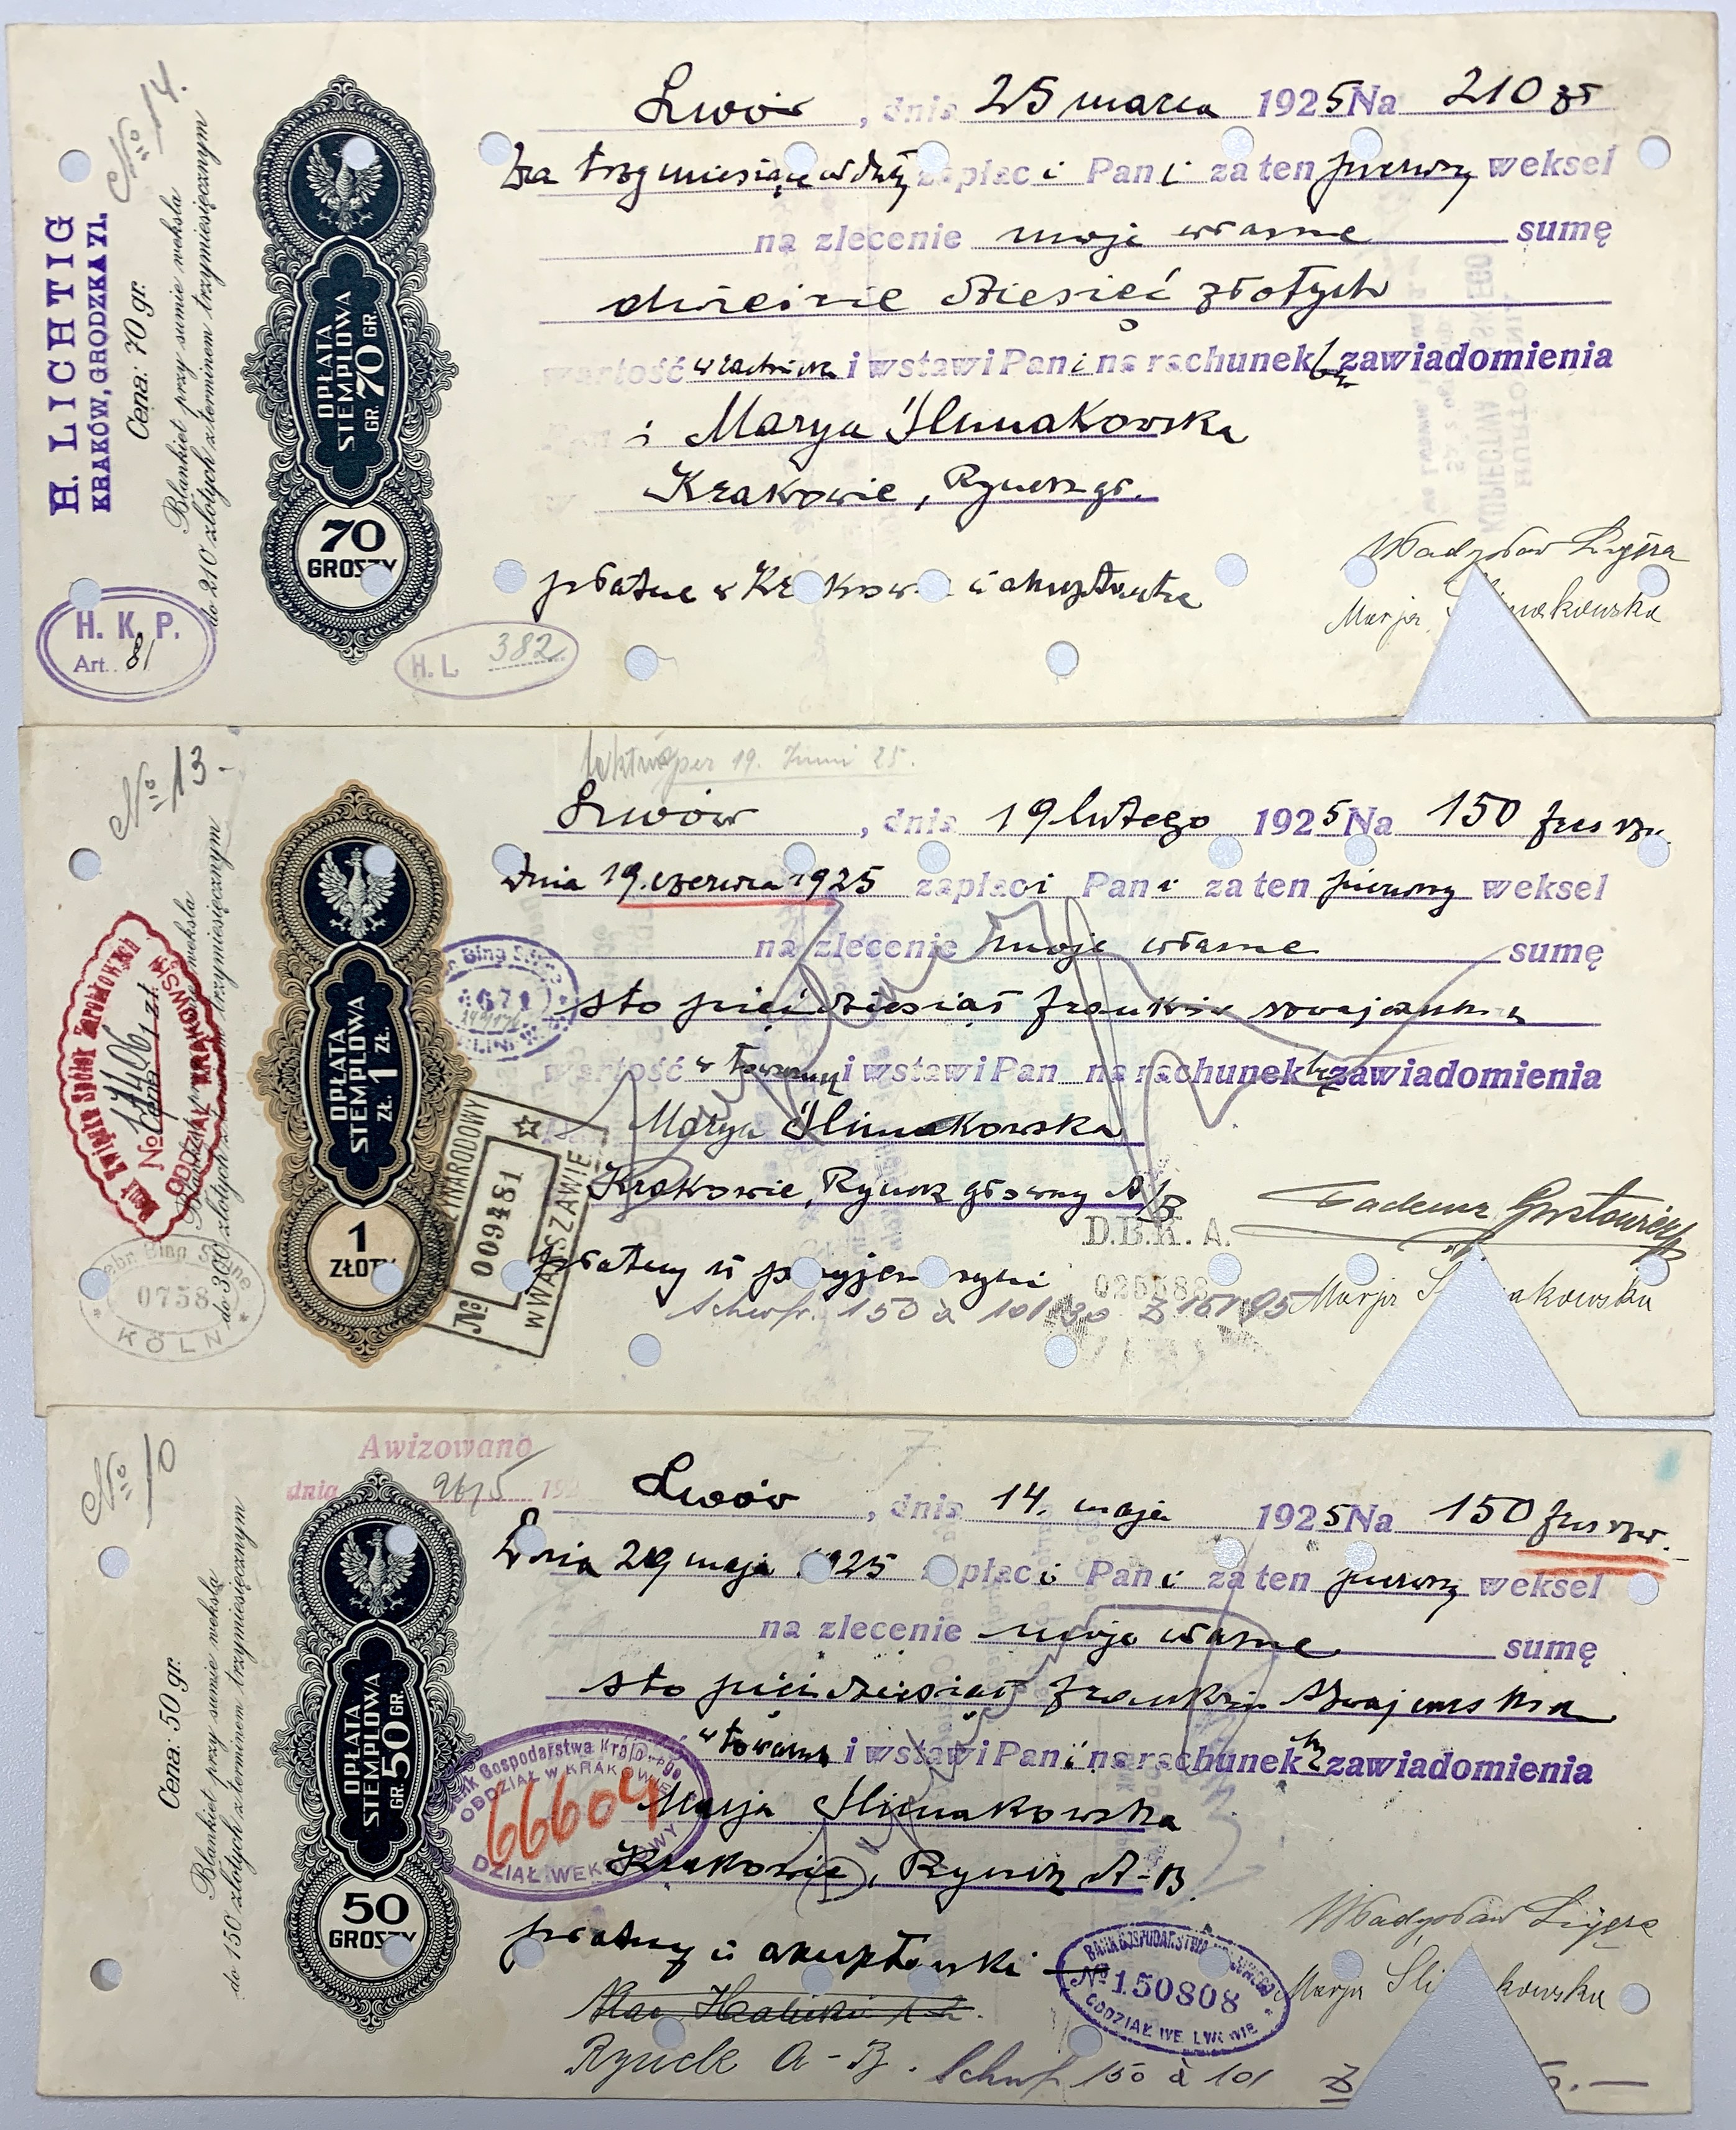 No 14.
H. LICHTIG
KRAKÓW, GRODZKA 71.
Cena: 70 gr.
Blankiet przy sumie weksla
do 210 złotych z terminem trzymiesięcznym
OPŁATA
STEMPLOWA
GR. 70 GR.
70
GROSZY
H. K. P.
Art. 81
H. L. 382
Lwów, dnia 25 marca 1925 Na 210 zł
Za trzy miesiące zapłaci Pani za ten pierwszy weksel
na zlecenie moje własne sumę
dwieście dziesięć złotych
wartość i wstawi Pani na rachunek bz zawiadomienia
Pani Marya Ślimakowska
Krakowie, Rynek gł.
płatne w Krakowie u akceptantki
Władysław
Marja Ślimakowska
No 13.
19. Juni 25.
Blankiet przy sumie weksla
do 300 złotych z terminem trzymiesięcznym
Cena 1 zł.
Bank Związku Spółek Zarobkowych
No 14406
ODDZIAŁ KRAKOWSKI
OPŁATA
STEMPLOWA
ZŁ. 1 ZŁ.
1
ZŁOTY
Gebr. Bing Söhne
0758
KÖLN
Gebr. Bing Söhne
671
No 009481
W WARSZAWIE
Lwów, dnia 19 lutego 1925 Na 150 frs szw.
Dnia 19. czerwca 1925 zapłaci Pani za ten pierwszy weksel
na zlecenie moje własne sumę
sto pięćdziesiąt franków szwajcarskich
wartość w towarze i wstawi Pan na rachunek bz zawiadomienia
Marya Ślimakowska
Krakowie, Rynek główny A/B
D.B.K.A.
płatny u przyjemczyni
025588
150 à 101
Tadeusz
Marja Ślimakowska
No 10
Awizowano
dnia 26/5 192
Cena: 50 gr.
Blankiet przy sumie weksla
do 150 złotych z terminem trzymiesięcznym
OPŁATA
STEMPLOWA
GR. 50 GR.
50
GROSZY
Lwów, dnia 14. maja 1925 Na 150 frs szw.
Dnia 29 maja 1925 zapłaci Pani za ten pierwszy weksel
na zlecenie moje własne sumę
sto pięćdziesiąt franków szwajcarskich
w towarze i wstawi Pani na rachunek bz zawiadomienia
Bank Gospodarstwa Krajowego
ODDZIAŁ W KRAKOWIE
66604
DZIAŁ WEKSLOWY
Marja Ślimakowska
Krakowie, Rynek A-B
płatny u akceptantki
BANK GOSPODARSTWA KRAJOWEGO
No 150808
ODDZIAŁ WE LWOWIE
Władysław
Marja Ślimakowska
Rynek A-B. 150 à 101